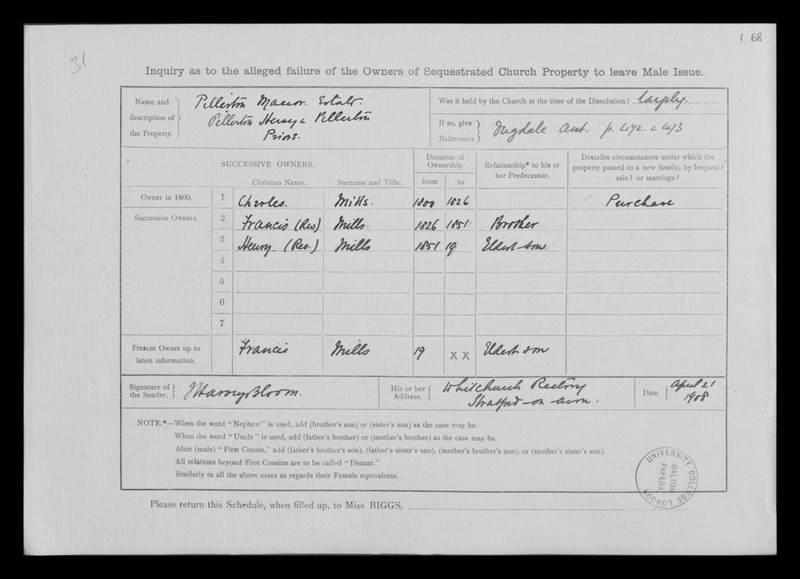 f. 68
31
Inquiry as to the alleged failure of the Owners of Sequestrated Church Property to leave Male Issue.
Name and description of the Property. Pillerton Manor. Estate. Pillerton Hersey & Pillerton Priors.
Was it held by the Church at the time of the Dissolution? largely.
If so, give References Dugdale Ant. p. 472. & 473
SUCCESSIVE OWNERS.
Christian Name. Surname and Title.
Duration of Ownership
from to
Relationship* to his or her Predecessor.
Describe circumstances under which the property passed to a new family, by bequest? sale? or marriage?
Owner in 1800. 1 Charles. Mills. 1800 1826 Purchase
Successive Owners. 2 Francis (Rev) Mills 1826 1851 Brother
3 Henry. (Rev.) Mills 1851 19 Eldest son
4
5
6
7
Present Owner up to latest information. Francis Mills 19 x x Eldest son
Signature of the Sender. J Harvey Bloom.
His or her Address. Whitchurch Rectory Stratford-on-avon.
Date. April 21 1908
NOTE.*—When the word "Nephew" is used, add (brother's son) or (sister's son) as the case may be.
When the word "Uncle" is used, add (father's brother) or (mother's brother) as the case may be.
After (male) "First Cousin," add (father's brother's son), (father's sister's son), (mother's brother's son), or (mother's sister's son).
All relations beyond First Cousins are to be called "Distant."
Similarly in all the above cases as regards their Female equivalents.
UNIVERSITY COLLEGE LONDON
GALTON PAPERS
Please return this Schedule, when filled up, to Miss BIGGS,